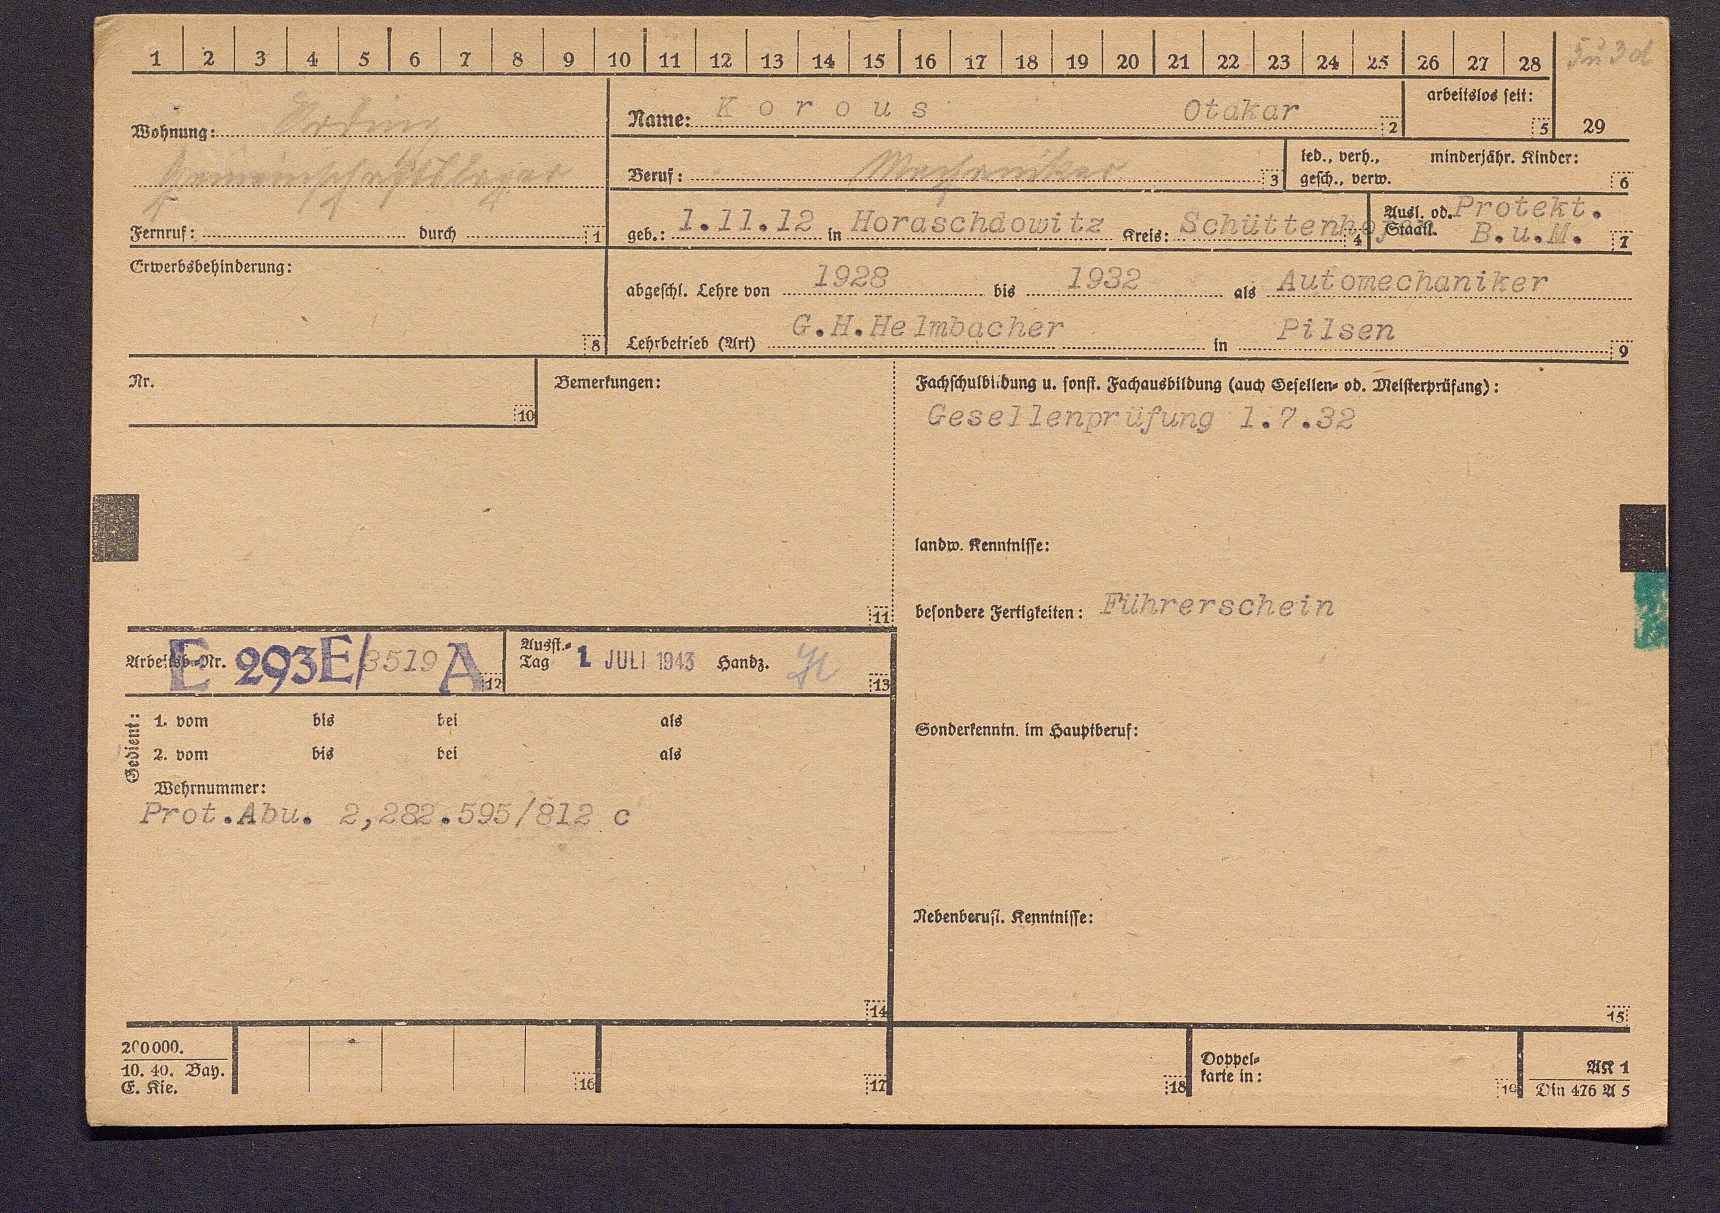 1 2 3 4 5 6 7 8 9 10 11 12 13 14 15 16 17 18 19 20 21 22 23 24 25 26 27 28
Wohnung: Erding
Gemeinschaftslager
Fernruf: durch 1
Name: Korous Otakar 2
arbeitslos seit: 5
29
Beruf: Mechaniker 3
led., verh., minderjähr. Kinder:
gesch., verw. 6
geb.: 1.11.12 in Horaschdowitz Kreis: Schüttenhofen 4
Ausl. od. Protekt.
Staatl. B.u.M. 7
Erwerbsbehinderung:
8
abgeschl. Lehre von 1928 bis 1932 als Automechaniker
Lehrbetrieb (Art) G.H.Helmbacher in Pilsen 9
Nr.
10
Bemerkungen:
11
Fachschulbildung u. sonst. Fachausbildung (auch Gesellen- od. Meisterprüfung):
Gesellenprüfung 1.7.32
landw. Kenntnisse:
besondere Fertigkeiten: Führerschein
Sonderkenntn. im Hauptberuf:
Nebenberufl. Kenntnisse:
15
Arbeitsb-Nr. E 293E/3519 A 12
Ausst.-
Tag 1 JULI 1943 Handz. 13
Gedient:
1. vom bis bei als
2. vom bis bei als
Wehrnummer:
Prot.Abu. 2,282.595/812 c
14
200000.
10. 40. Bay.
E. Kie.
16 17 18
Doppel-
karte in:
19
AK 1
Din 476 A 5